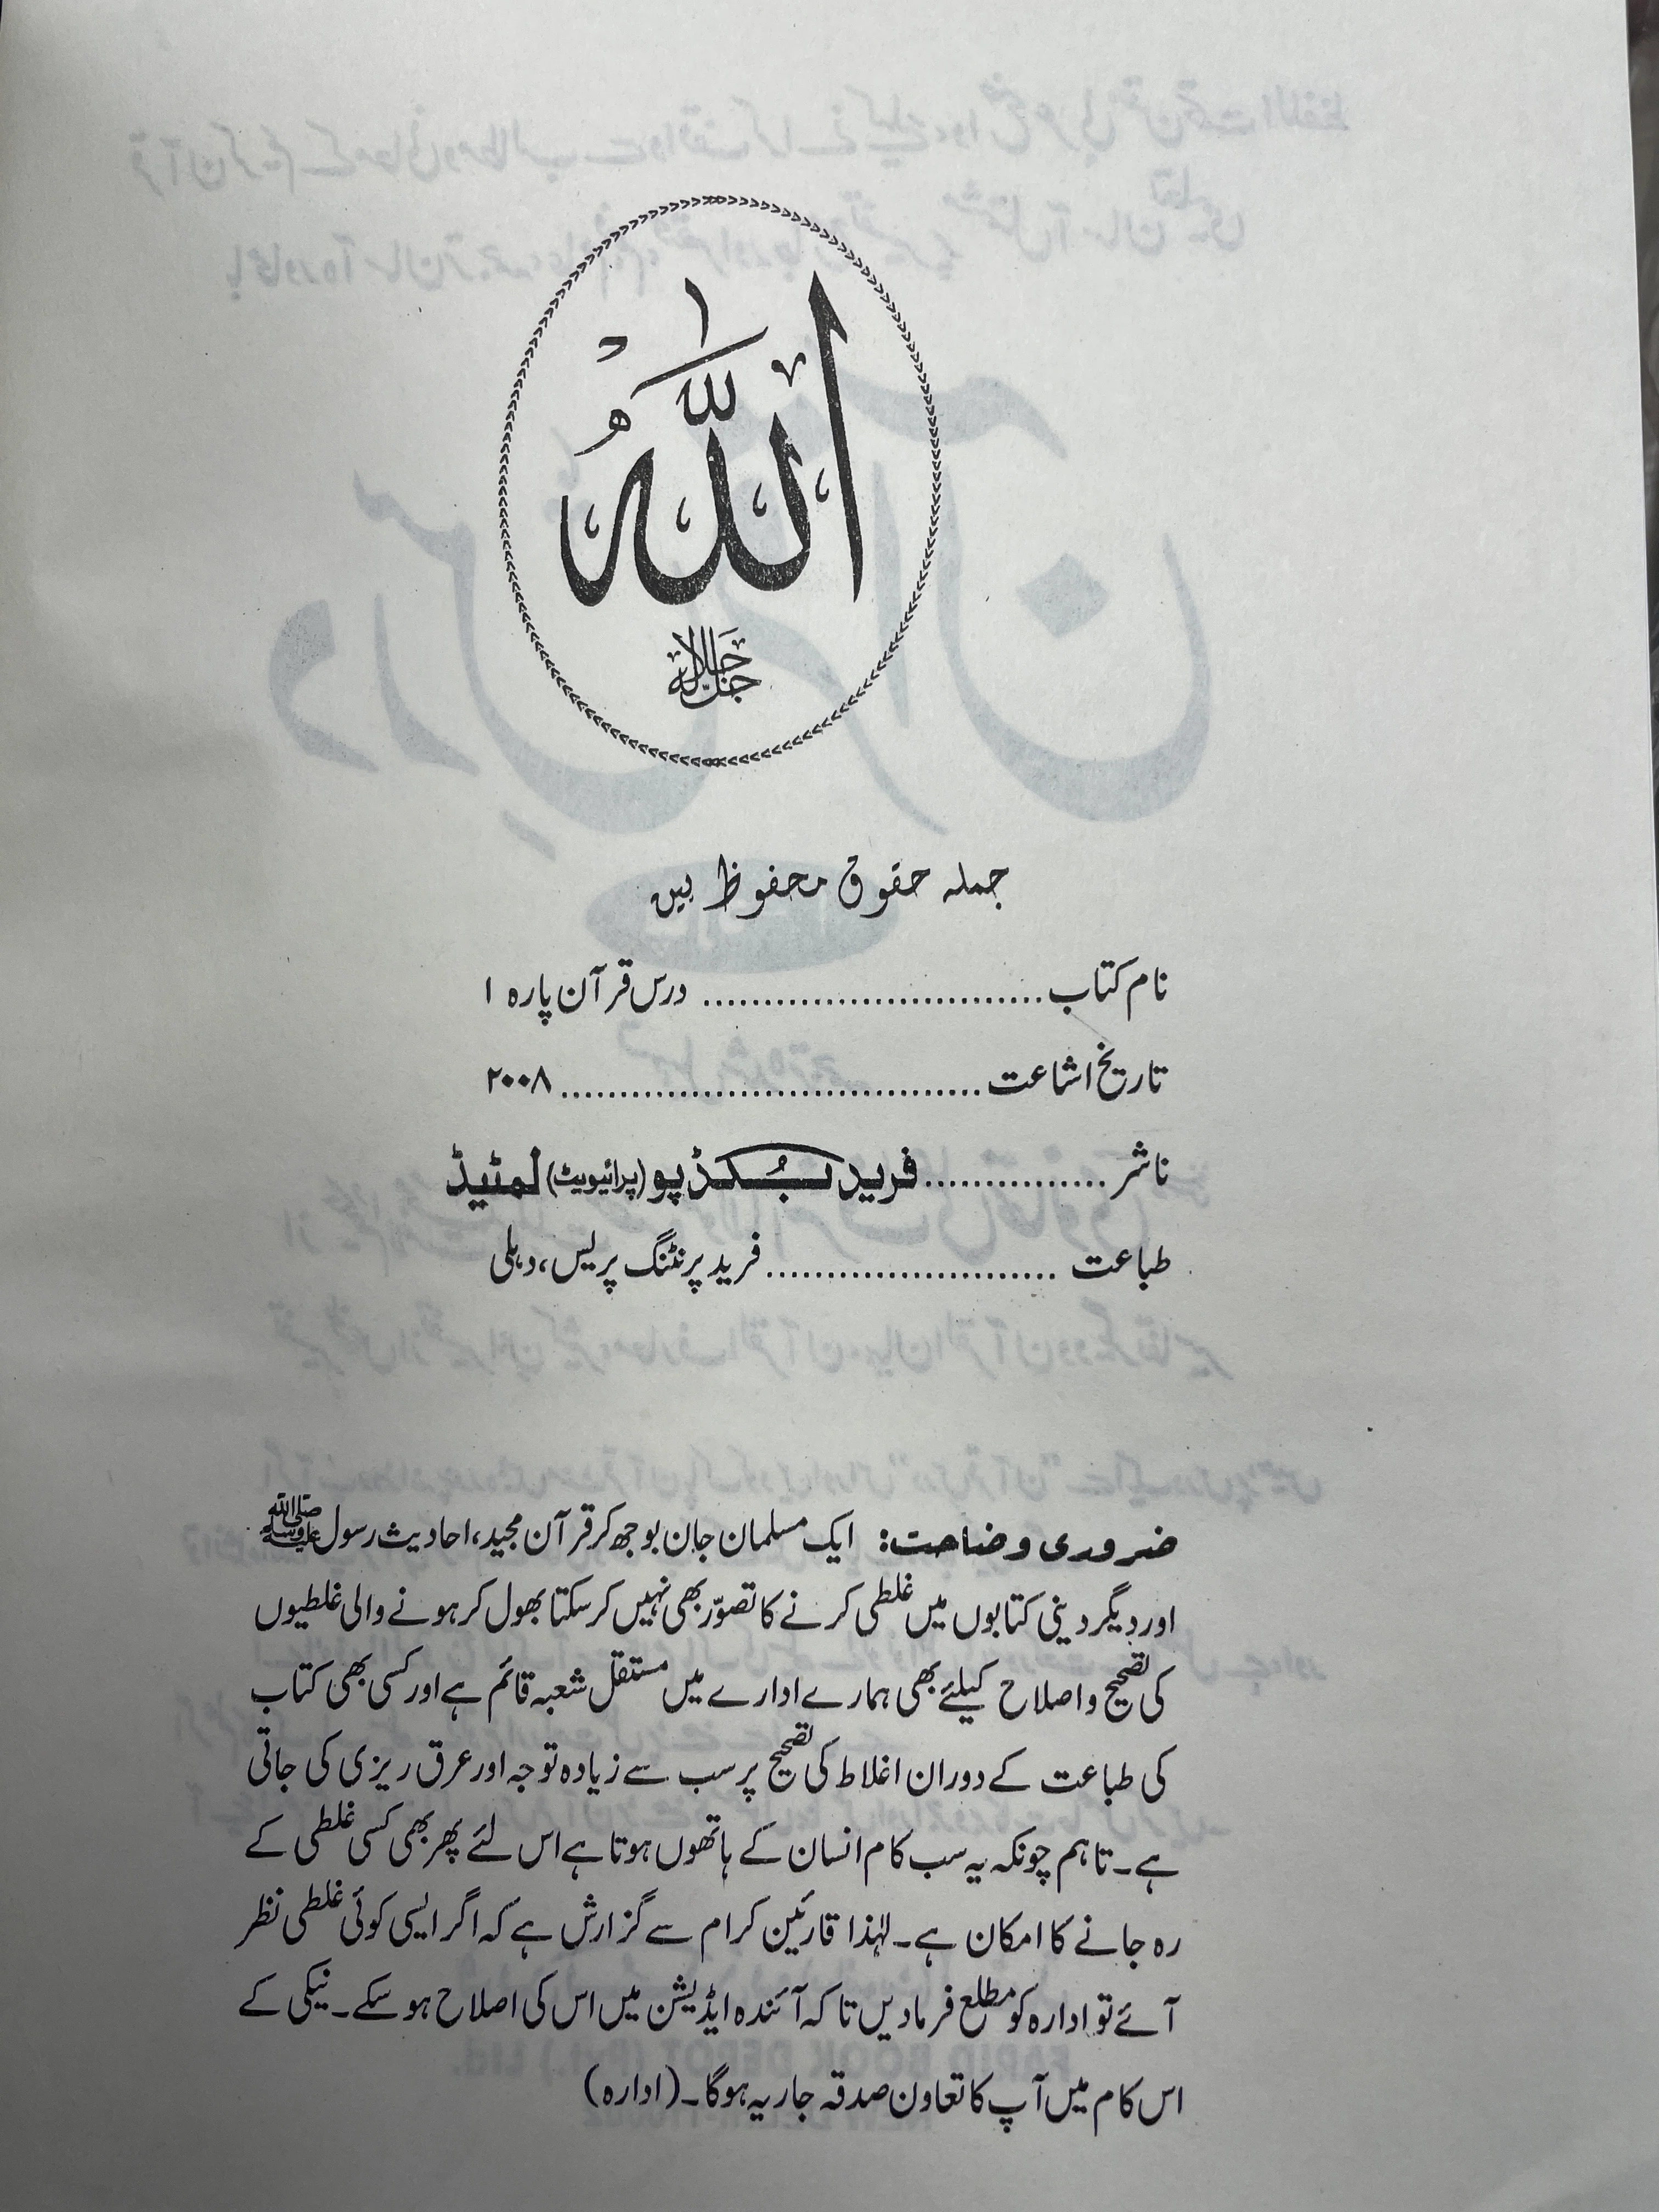 اللّٰهُ
جل جلاله
جملہ حقوق محفوظ ہیں
نام کتاب ............................ درس قرآن پارہ ۱
تاریخ اشاعت .................................. ۲۰۰۸
ناشر ............... فرید بُکڈپو (پرائیویٹ) لمٹیڈ
طباعت ........................ فرید پرنٹنگ پریس، دہلی
ضروری وضاحت: ایک مسلمان جان بوجھ کر قرآن مجید، احادیث رسول ﷺ
اور دیگر دینی کتابوں میں غلطی کرنے کا تصوّر بھی نہیں کر سکتا بھول کر ہونے والی غلطیوں
کی تصحیح و اصلاح کیلئے بھی ہمارے ادارے میں مستقل شعبہ قائم ہے اور کسی بھی کتاب
کی طباعت کے دوران اغلاط کی تصحیح پر سب سے زیادہ توجہ اور عرق ریزی کی جاتی
ہے۔ تاہم چونکہ یہ سب کام انسان کے ہاتھوں ہوتا ہے اس لئے پھر بھی کسی غلطی کے
رہ جانے کا امکان ہے۔ لہٰذا قارئین کرام سے گزارش ہے کہ اگر ایسی کوئی غلطی نظر
آئے تو ادارہ کو مطلع فرمادیں تا کہ آئندہ ایڈیشن میں اس کی اصلاح ہو سکے۔ نیکی کے
اس کام میں آپ کا تعاون صدقہ جاریہ ہوگا۔ (ادارہ)